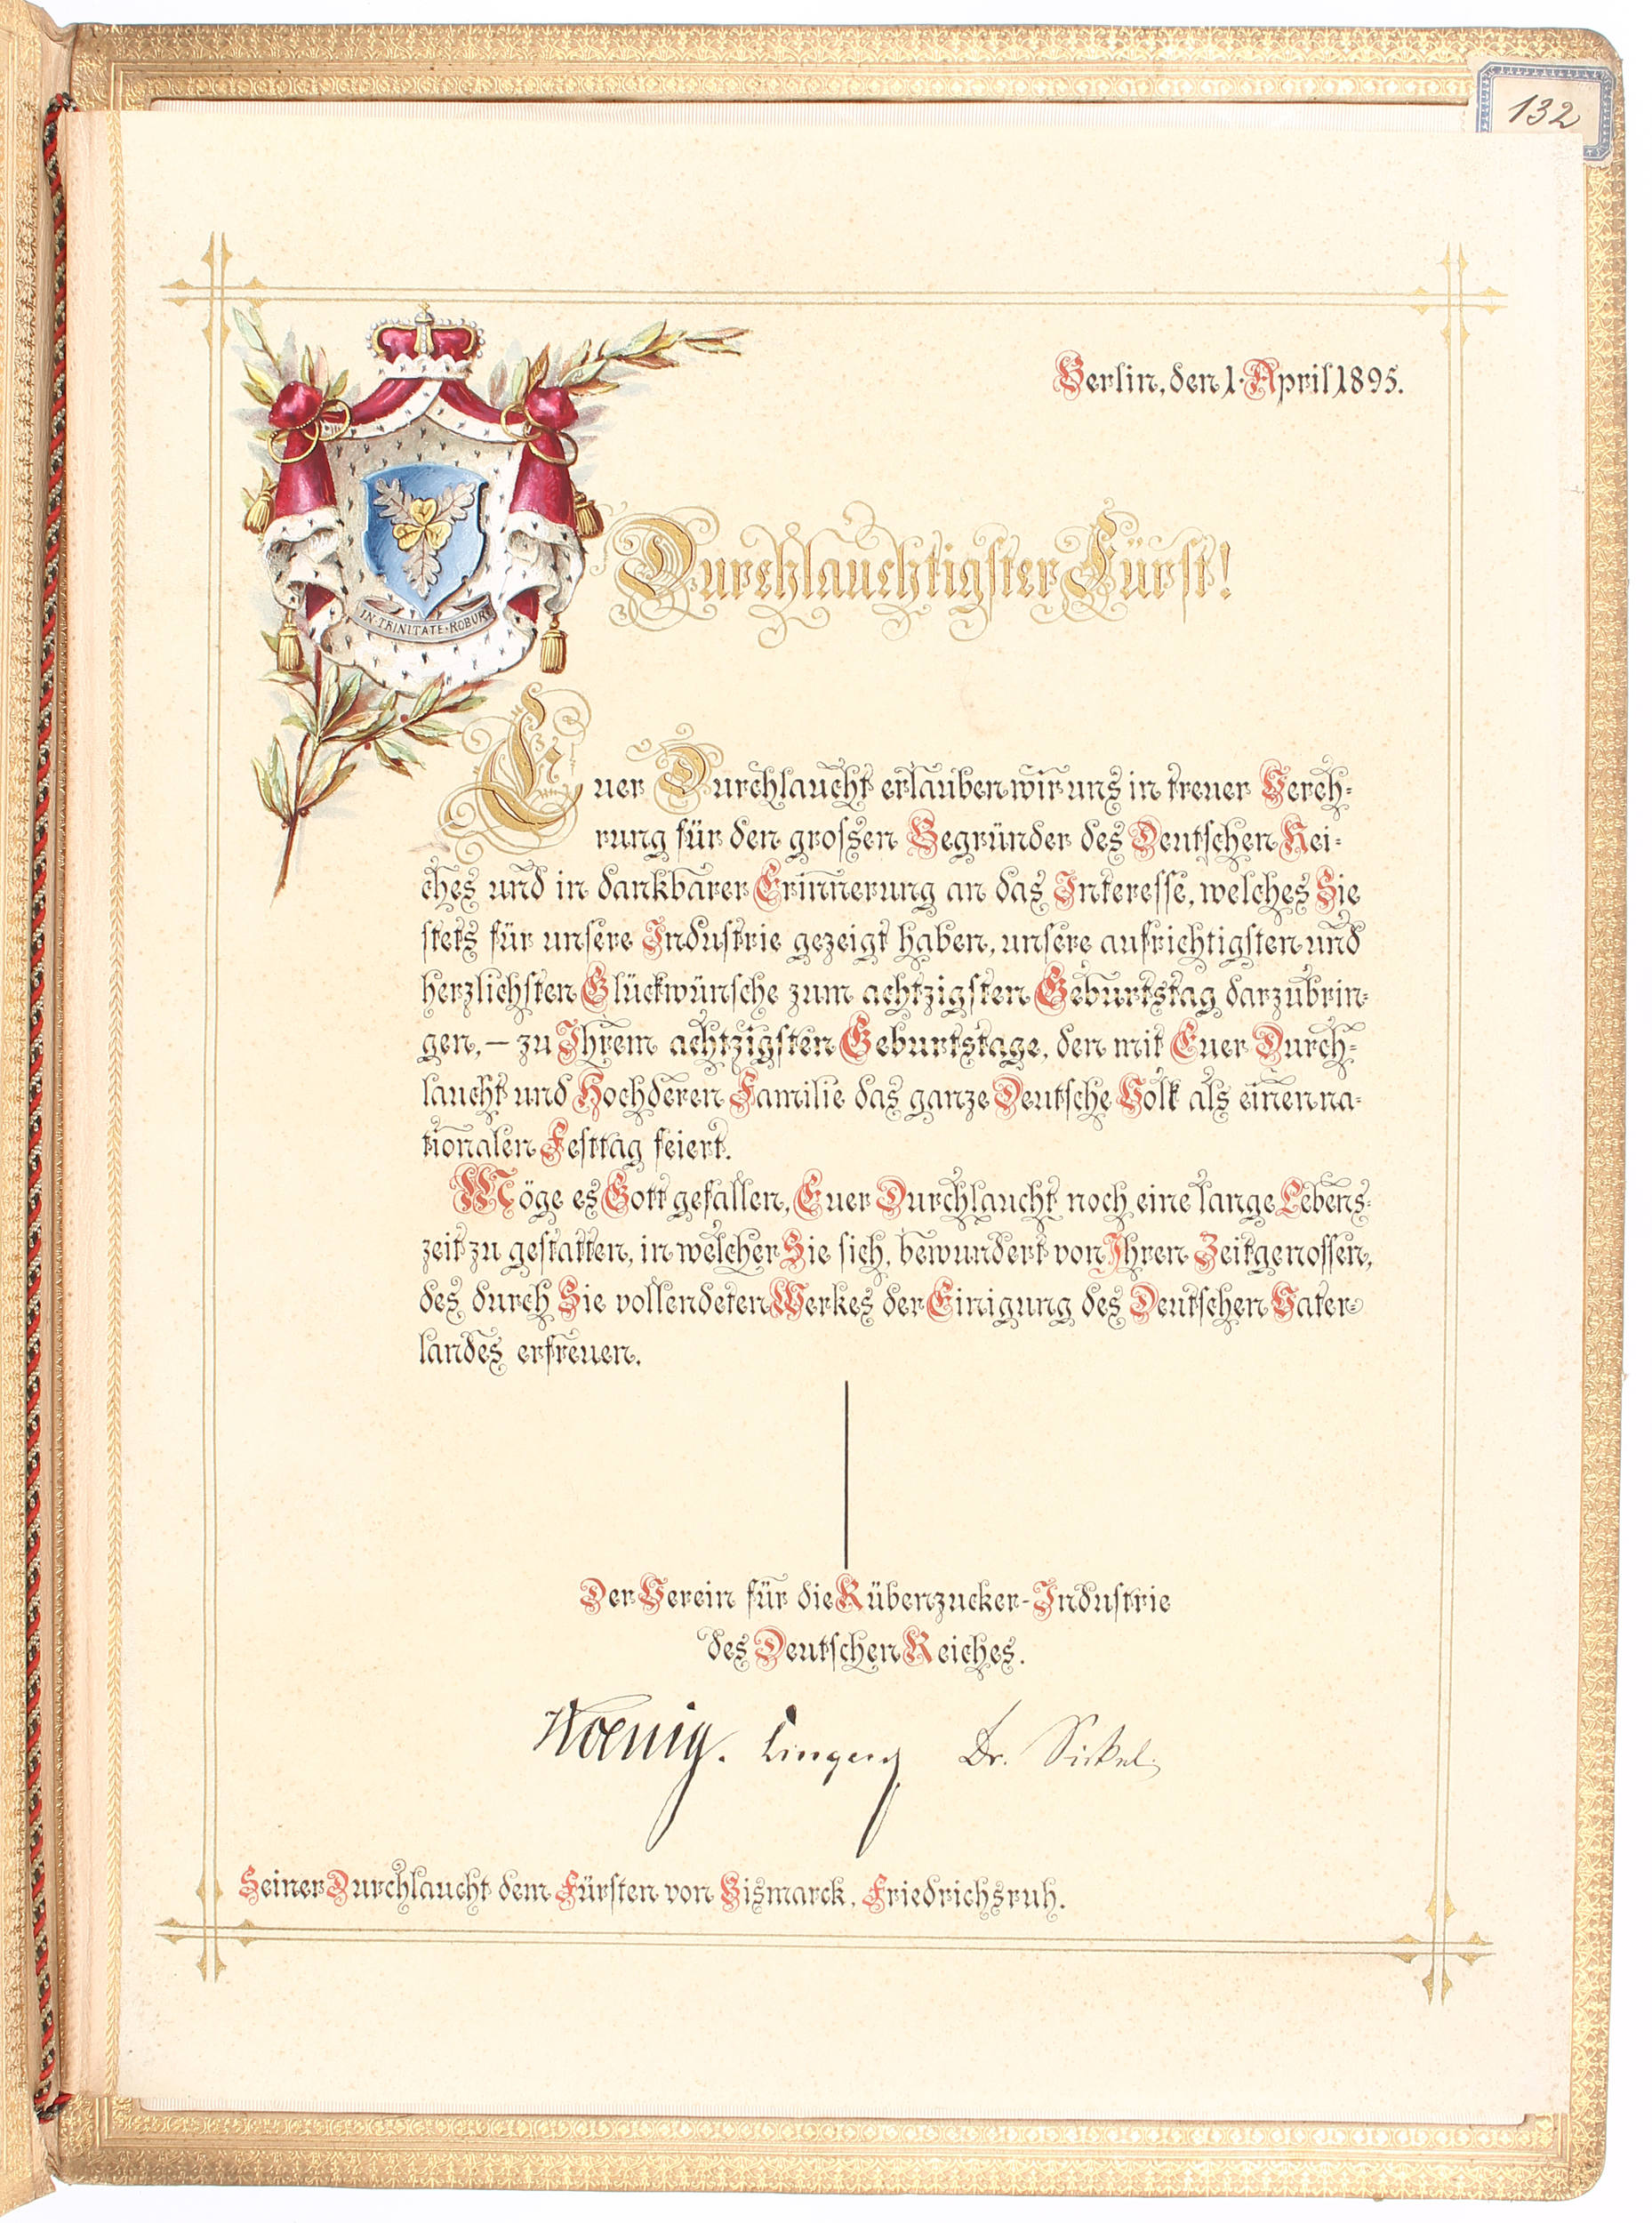 132
Berlin, den 1. April 1895.
Durchlauchtigster Fürst!
IN·TRINITATE·ROBUR
Euer Durchlaucht erlauben wir uns in treuer Vereh-
rung für den grossen Begründer des Deutschen Rei-
ches und in dankbarer Erinnerung an das Interesse, welches Sie
stets für unsere Industrie gezeigt haben, unsere aufrichtigsten und
herzlichsten Glückwünsche zum achtzigsten Geburtstag darzubrin-
gen, – zu Ihrem achtzigsten Geburtstage, den mit Euer Durch-
laucht und Hochderen Familie das ganze Deutsche Volk als einen na-
tionalen Festtag feiert.
Möge es Gott gefallen, Euer Durchlaucht noch eine lange Lebens-
zeit zu gestatten, in welcher Sie sich, bewundert von Ihren Zeitgenossen,
des durch Sie vollendeten Werkes der Einigung des Deutschen Vater-
landes erfreuen.
Der Verein für die Rübenzucker-Industrie
des Deutschen Reiches.
Koenig. Dr. Sickel.
Seiner Durchlaucht dem Fürsten von Bismarck, Friedrichsruh.